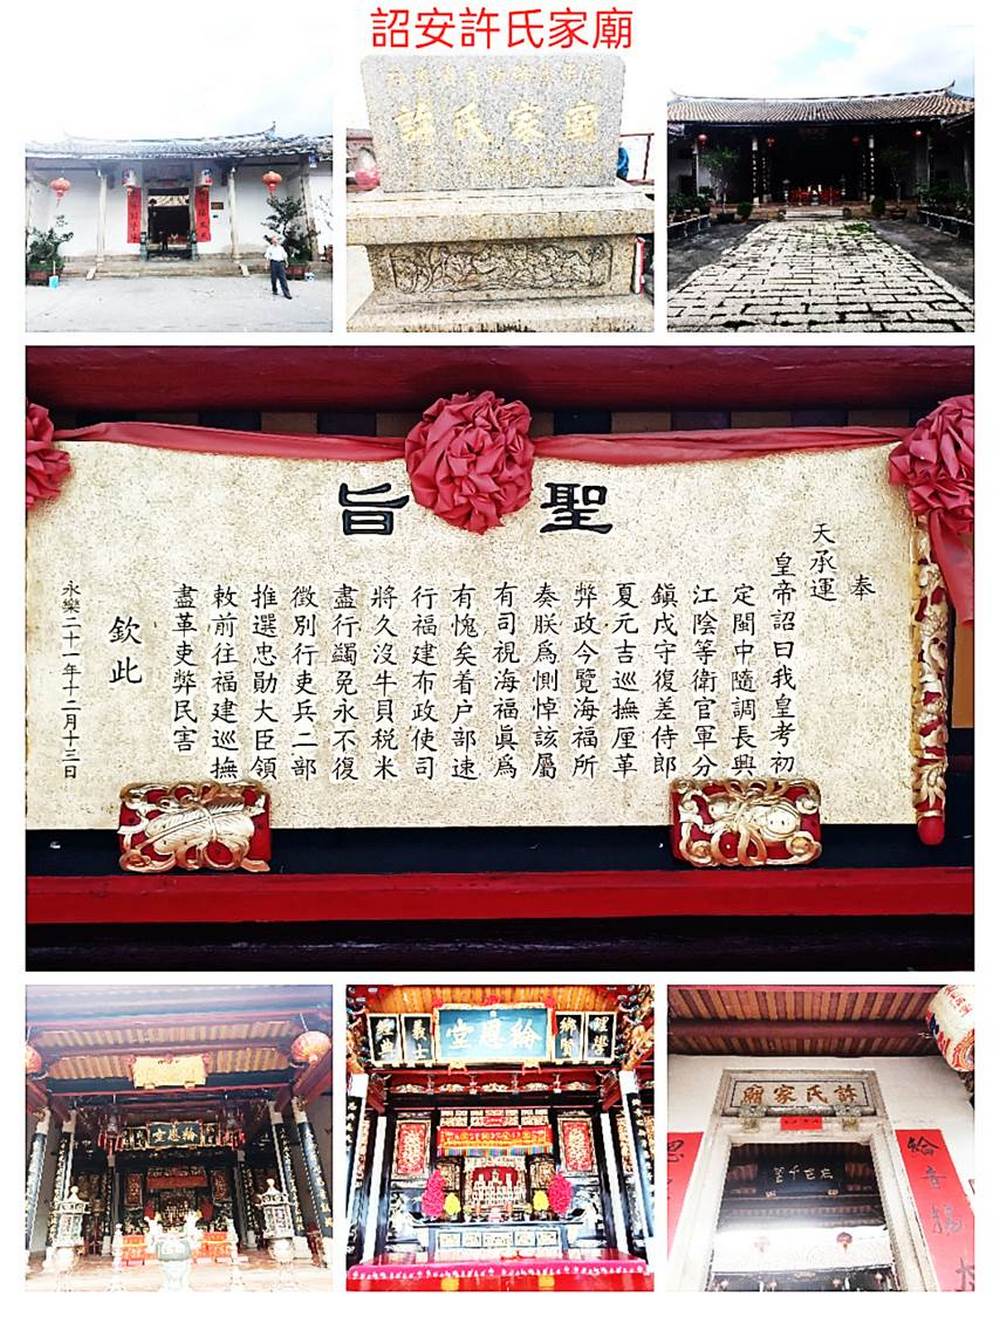 詔安許氏家廟
許氏家廟
聖旨
奉
天承運
皇帝詔曰我皇考初
定閩中隨調長興
江陰等衛官軍分
鎮戍守復差侍郎
夏元吉巡撫厘革
弊政今覽海福所
奏朕為惻悼該屬
有司視海福眞為
有愧矣着户部速
行福建布政使司
將久沒牛貝税米
盡行蠲免永不復
徴別行吏兵二部
推選忠勛大臣領
敕前往福建巡撫
盡革吏弊民害
欽此
永樂二十一年十二月十三日
綸恩堂
理學
鄉賢
綸恩堂
義士
許氏家廟